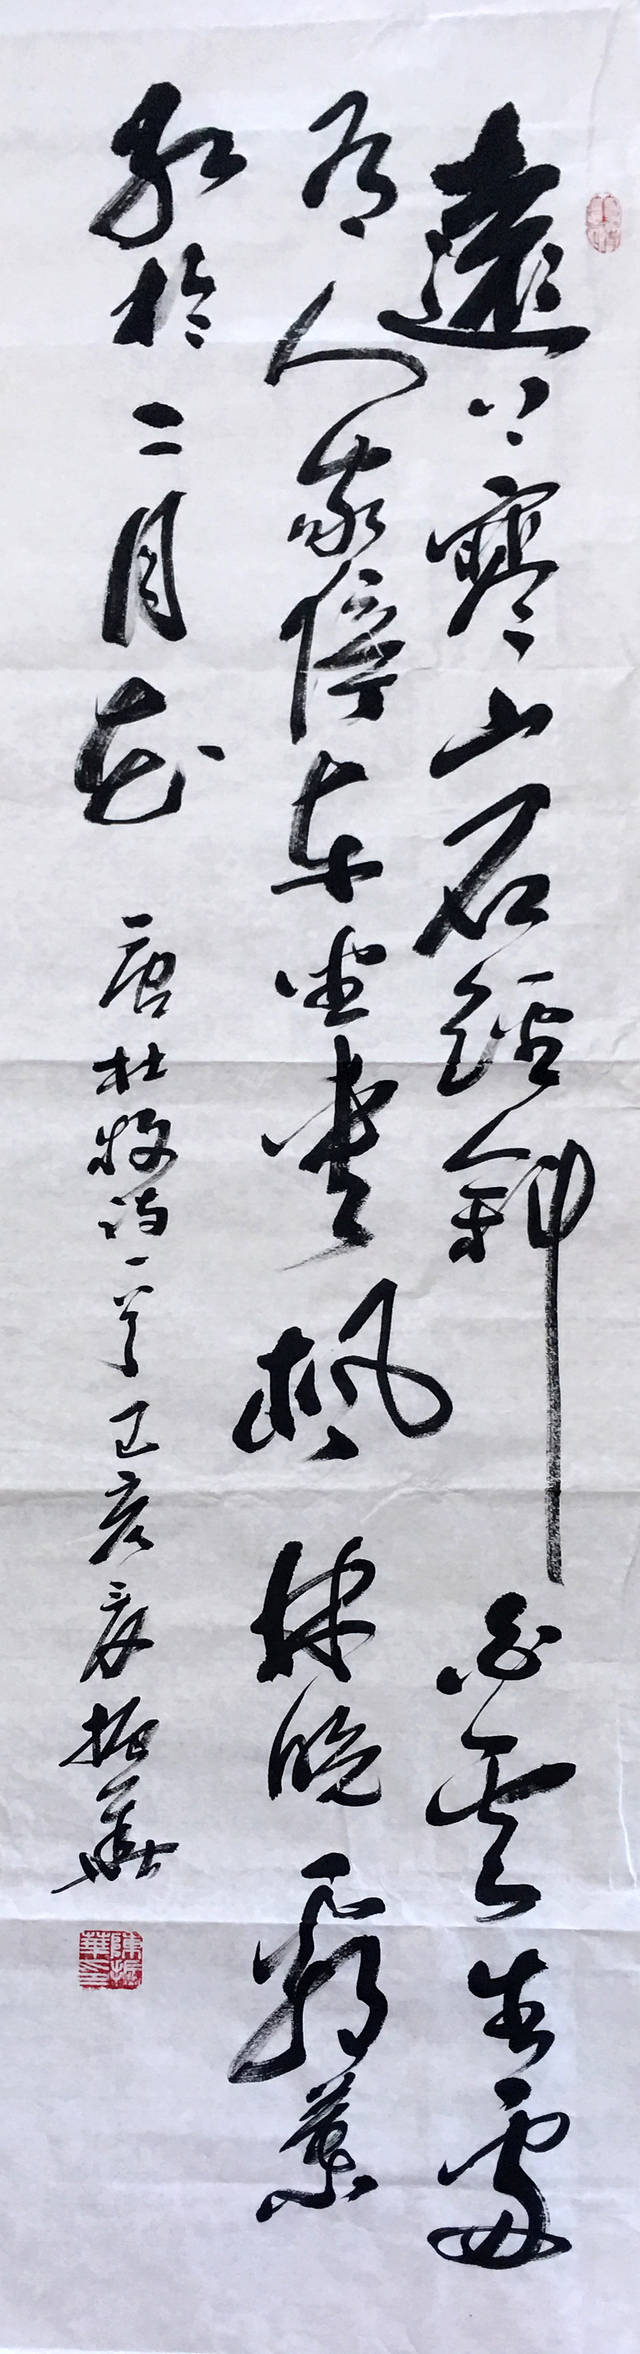 遠上寒山石徑斜白雲生處
有人家停車坐愛楓林晚霜葉
紅於二月花 唐杜牧詩一首己亥夏振華
陳振華印